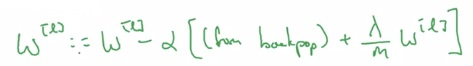 W^[l] := W^[l] - α [(from backprop) + λ/m W^[l]]